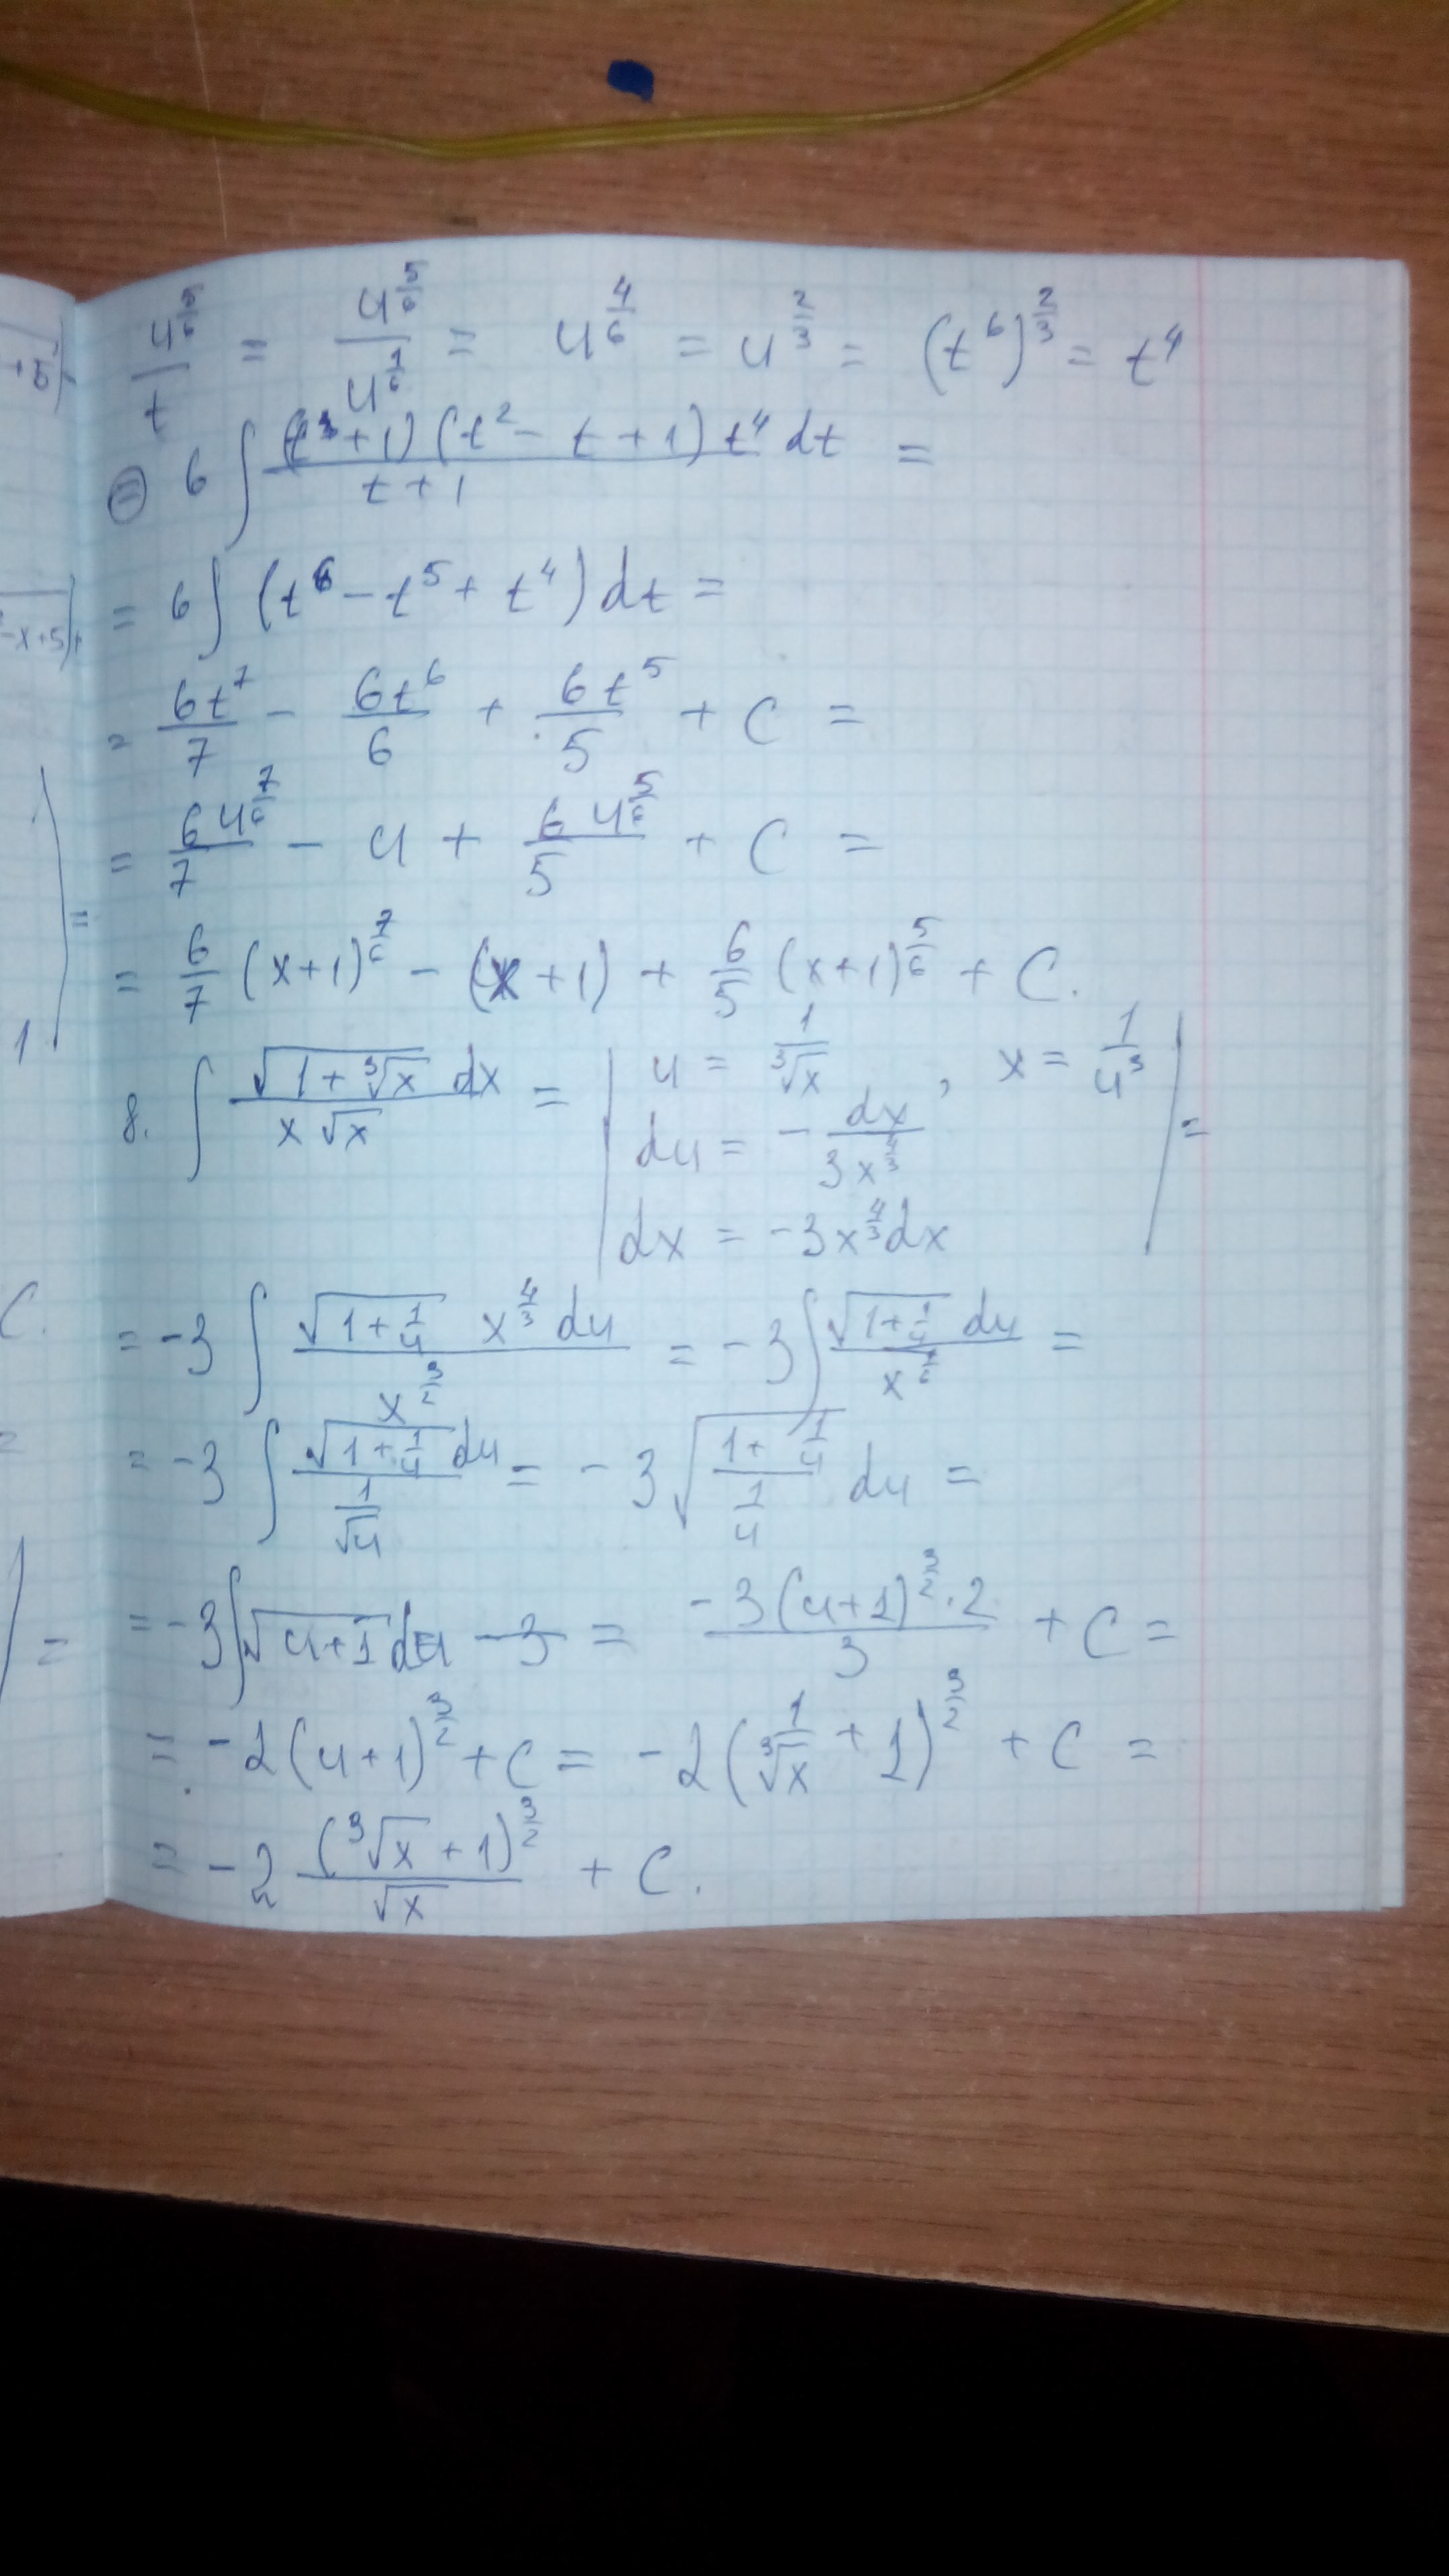 +5)
-x+5)+
1
C.
=
u^(5/6)/t = u^(5/6)/u^(1/6) = u^(4/6) = u^(2/3) = (t^6)^(2/3) = t^4
⊜ 6 ∫ (t+1)(t^2 - t + 1) t^4 dt/(t+1) =
= 6 ∫ (t^6 - t^5 + t^4) dt =
= 6t^7/7 - 6t^6/6 + 6t^5/5 + C =
= 6u^(7/6)/7 - u + 6u^(5/6)/5 + C =
= 6/7 (x+1)^(7/6) - (x+1) + 6/5 (x+1)^(5/6) + C.
8. ∫ √(1+∛x) dx/(x√x) = | u = 1/∛x, x = 1/u^3
du = - dx/(3x^(4/3))
dx = -3x^(4/3)dx | =
= -3 ∫ √(1+1/u) x^(4/3) du/x^(3/2) = -3 ∫ √(1+1/u) du/x^(1/6) =
= -3 ∫ √(1+1/u) du/(1/√u) = -3 √((1+1/u)/(1/u)) du =
= -3∫√(u+1) du = -3(u+1)^(3/2)·2/3 + C =
= -2(u+1)^(3/2) + C = -2(1/∛x + 1)^(3/2) + C =
= -2 (∛x+1)^(3/2)/√x + C.